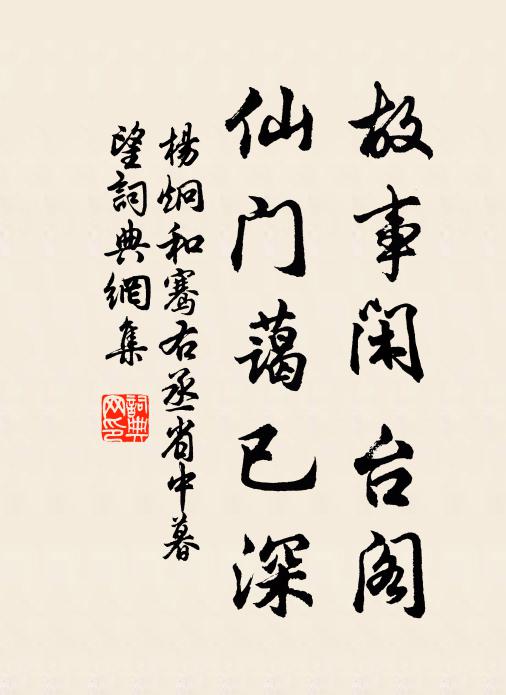 故事闲台阁
仙门蔼已深
杨炯和骞右丞省中暮
望詞典網集
詞典网印